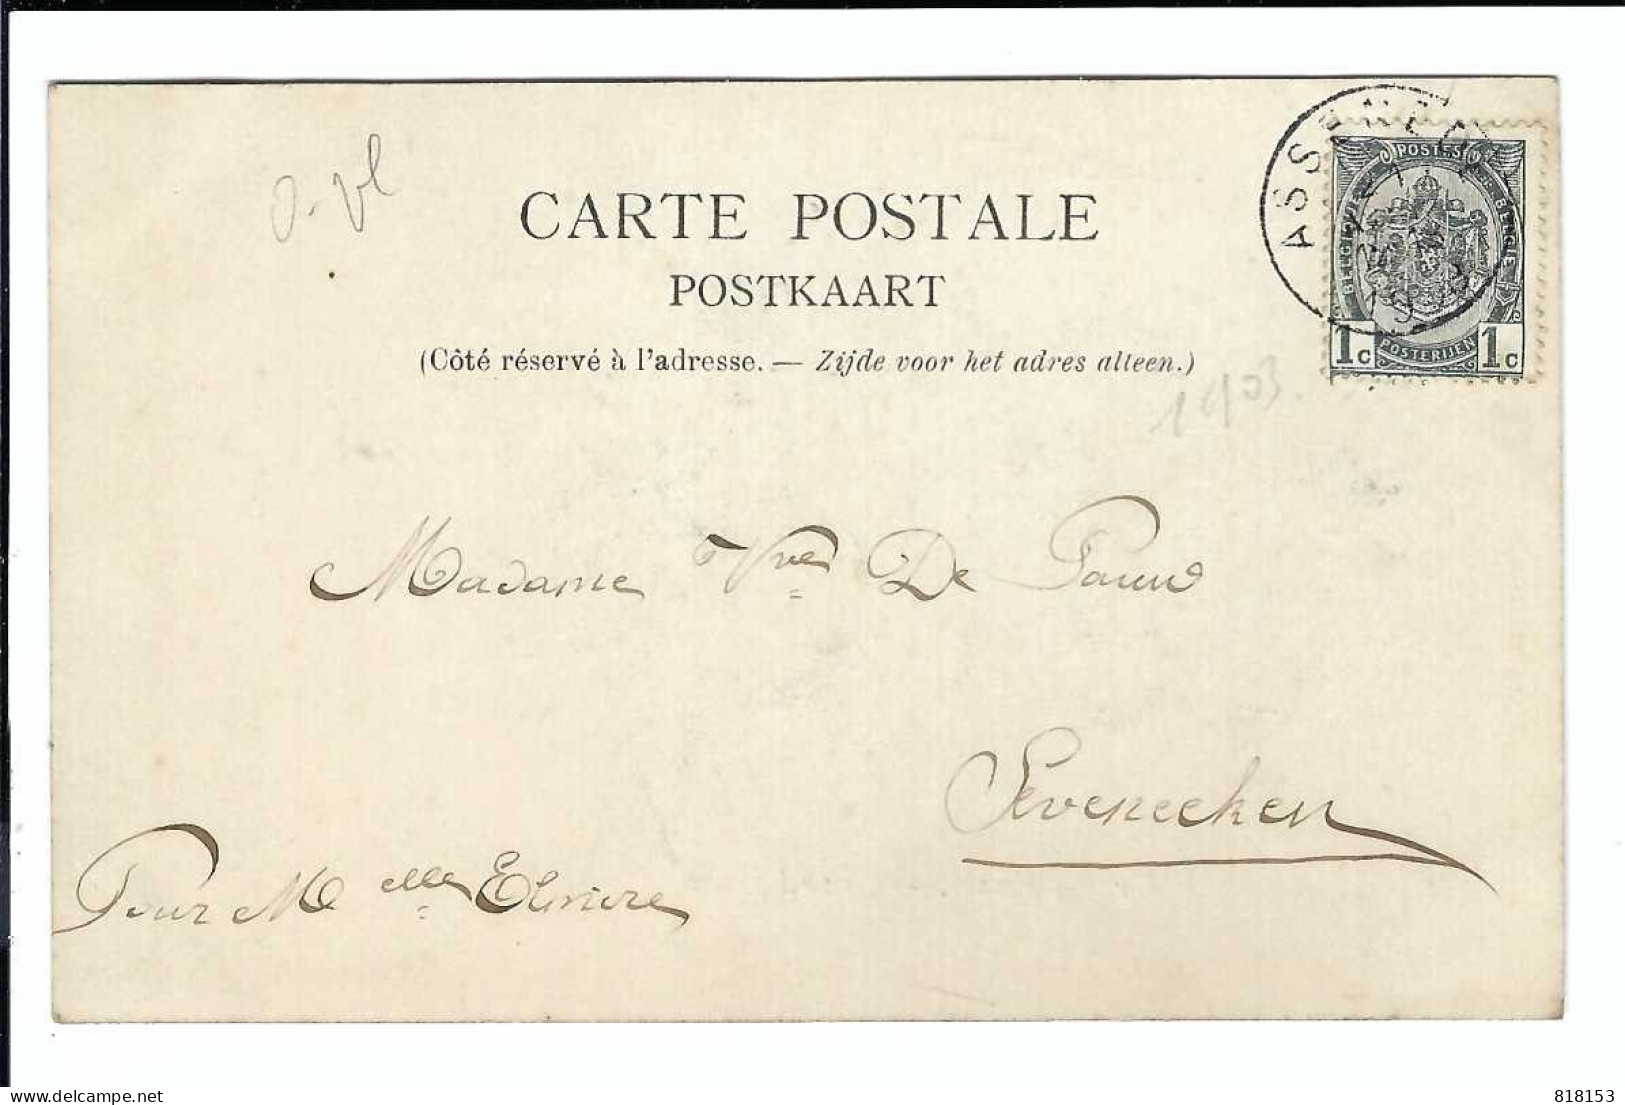 o-vl
CARTE POSTALE
POSTKAART
(Côté réservé à l'adresse. — Zijde voor het adres alleen.)
ASSENEDE
POSTES
BELGIQUE
BELGIE
POSTERIJEN
1c 1c
1903.
Madame Vve De Pauw
Sevenecken
Pour Melle Elmire
delcampe.net
818153